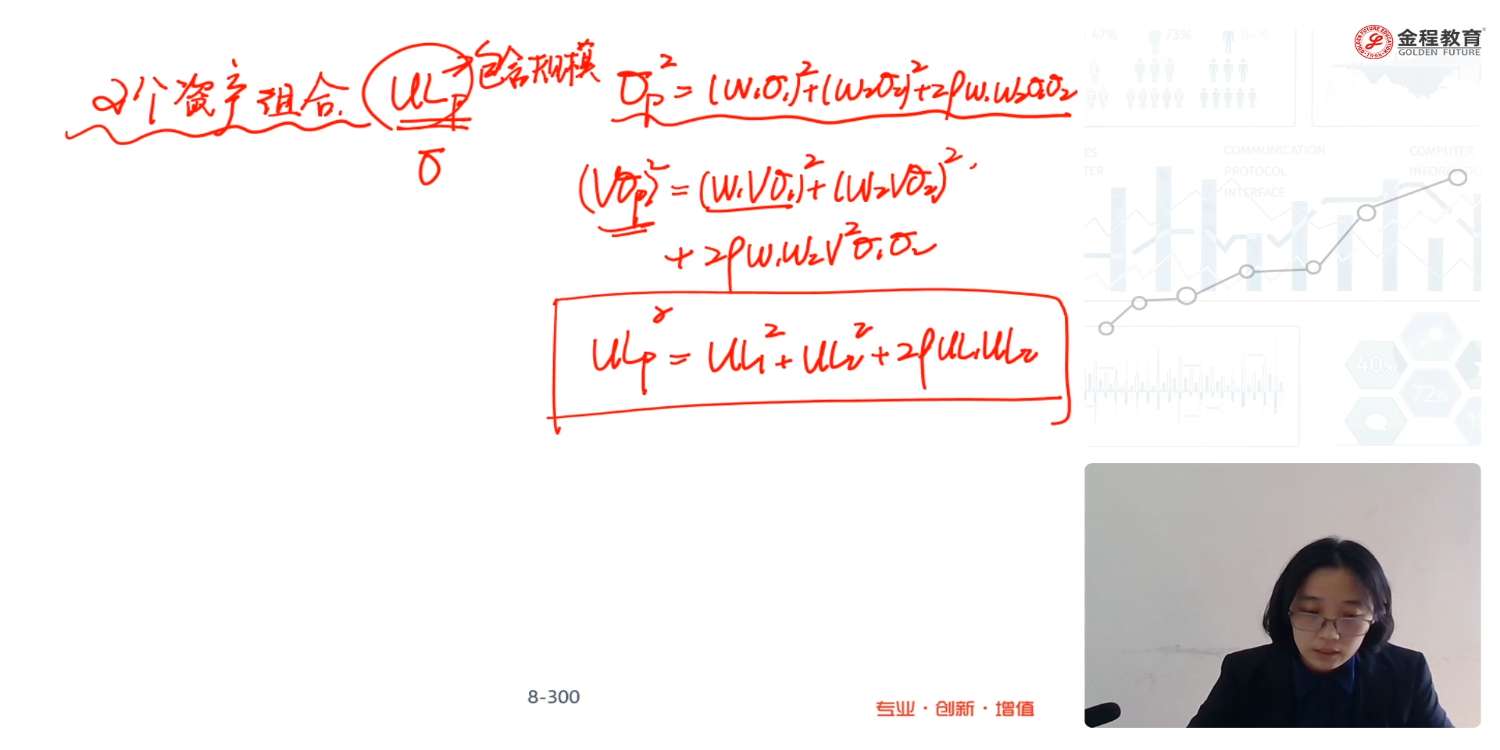 2个资产组合. ULp→包含规模
σ
σp² = (w₁σ₁)²+(w₂σ₂)²+2ρw₁w₂σ₁σ₂
(Vσp)² = (w₁Vσ₁)²+(w₂Vσ₂)²
+ 2ρw₁w₂V²σ₁σ₂
ULp² = UL₁²+UL₂²+2ρUL₁UL₂
金程教育
GOLDEN FUTURE
COMMUNICATION
PROTOCOL
INTERFACE
COMPUTER
8-300
专业·创新·增值